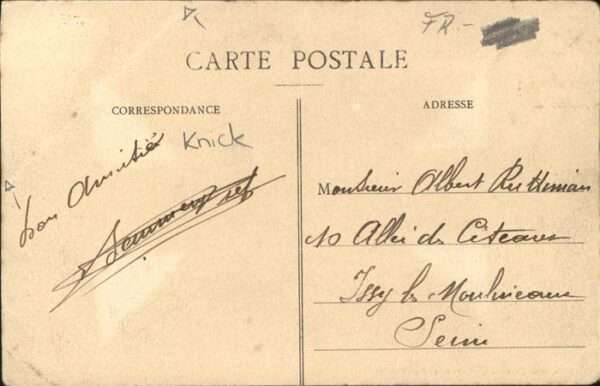 FR -
CARTE POSTALE
CORRESPONDANCE
ADRESSE
Bon Amitié
Knick
Monsieur Albert Ruthman
10 Allée des Citeaux
Issy les Moulineaux
Seine